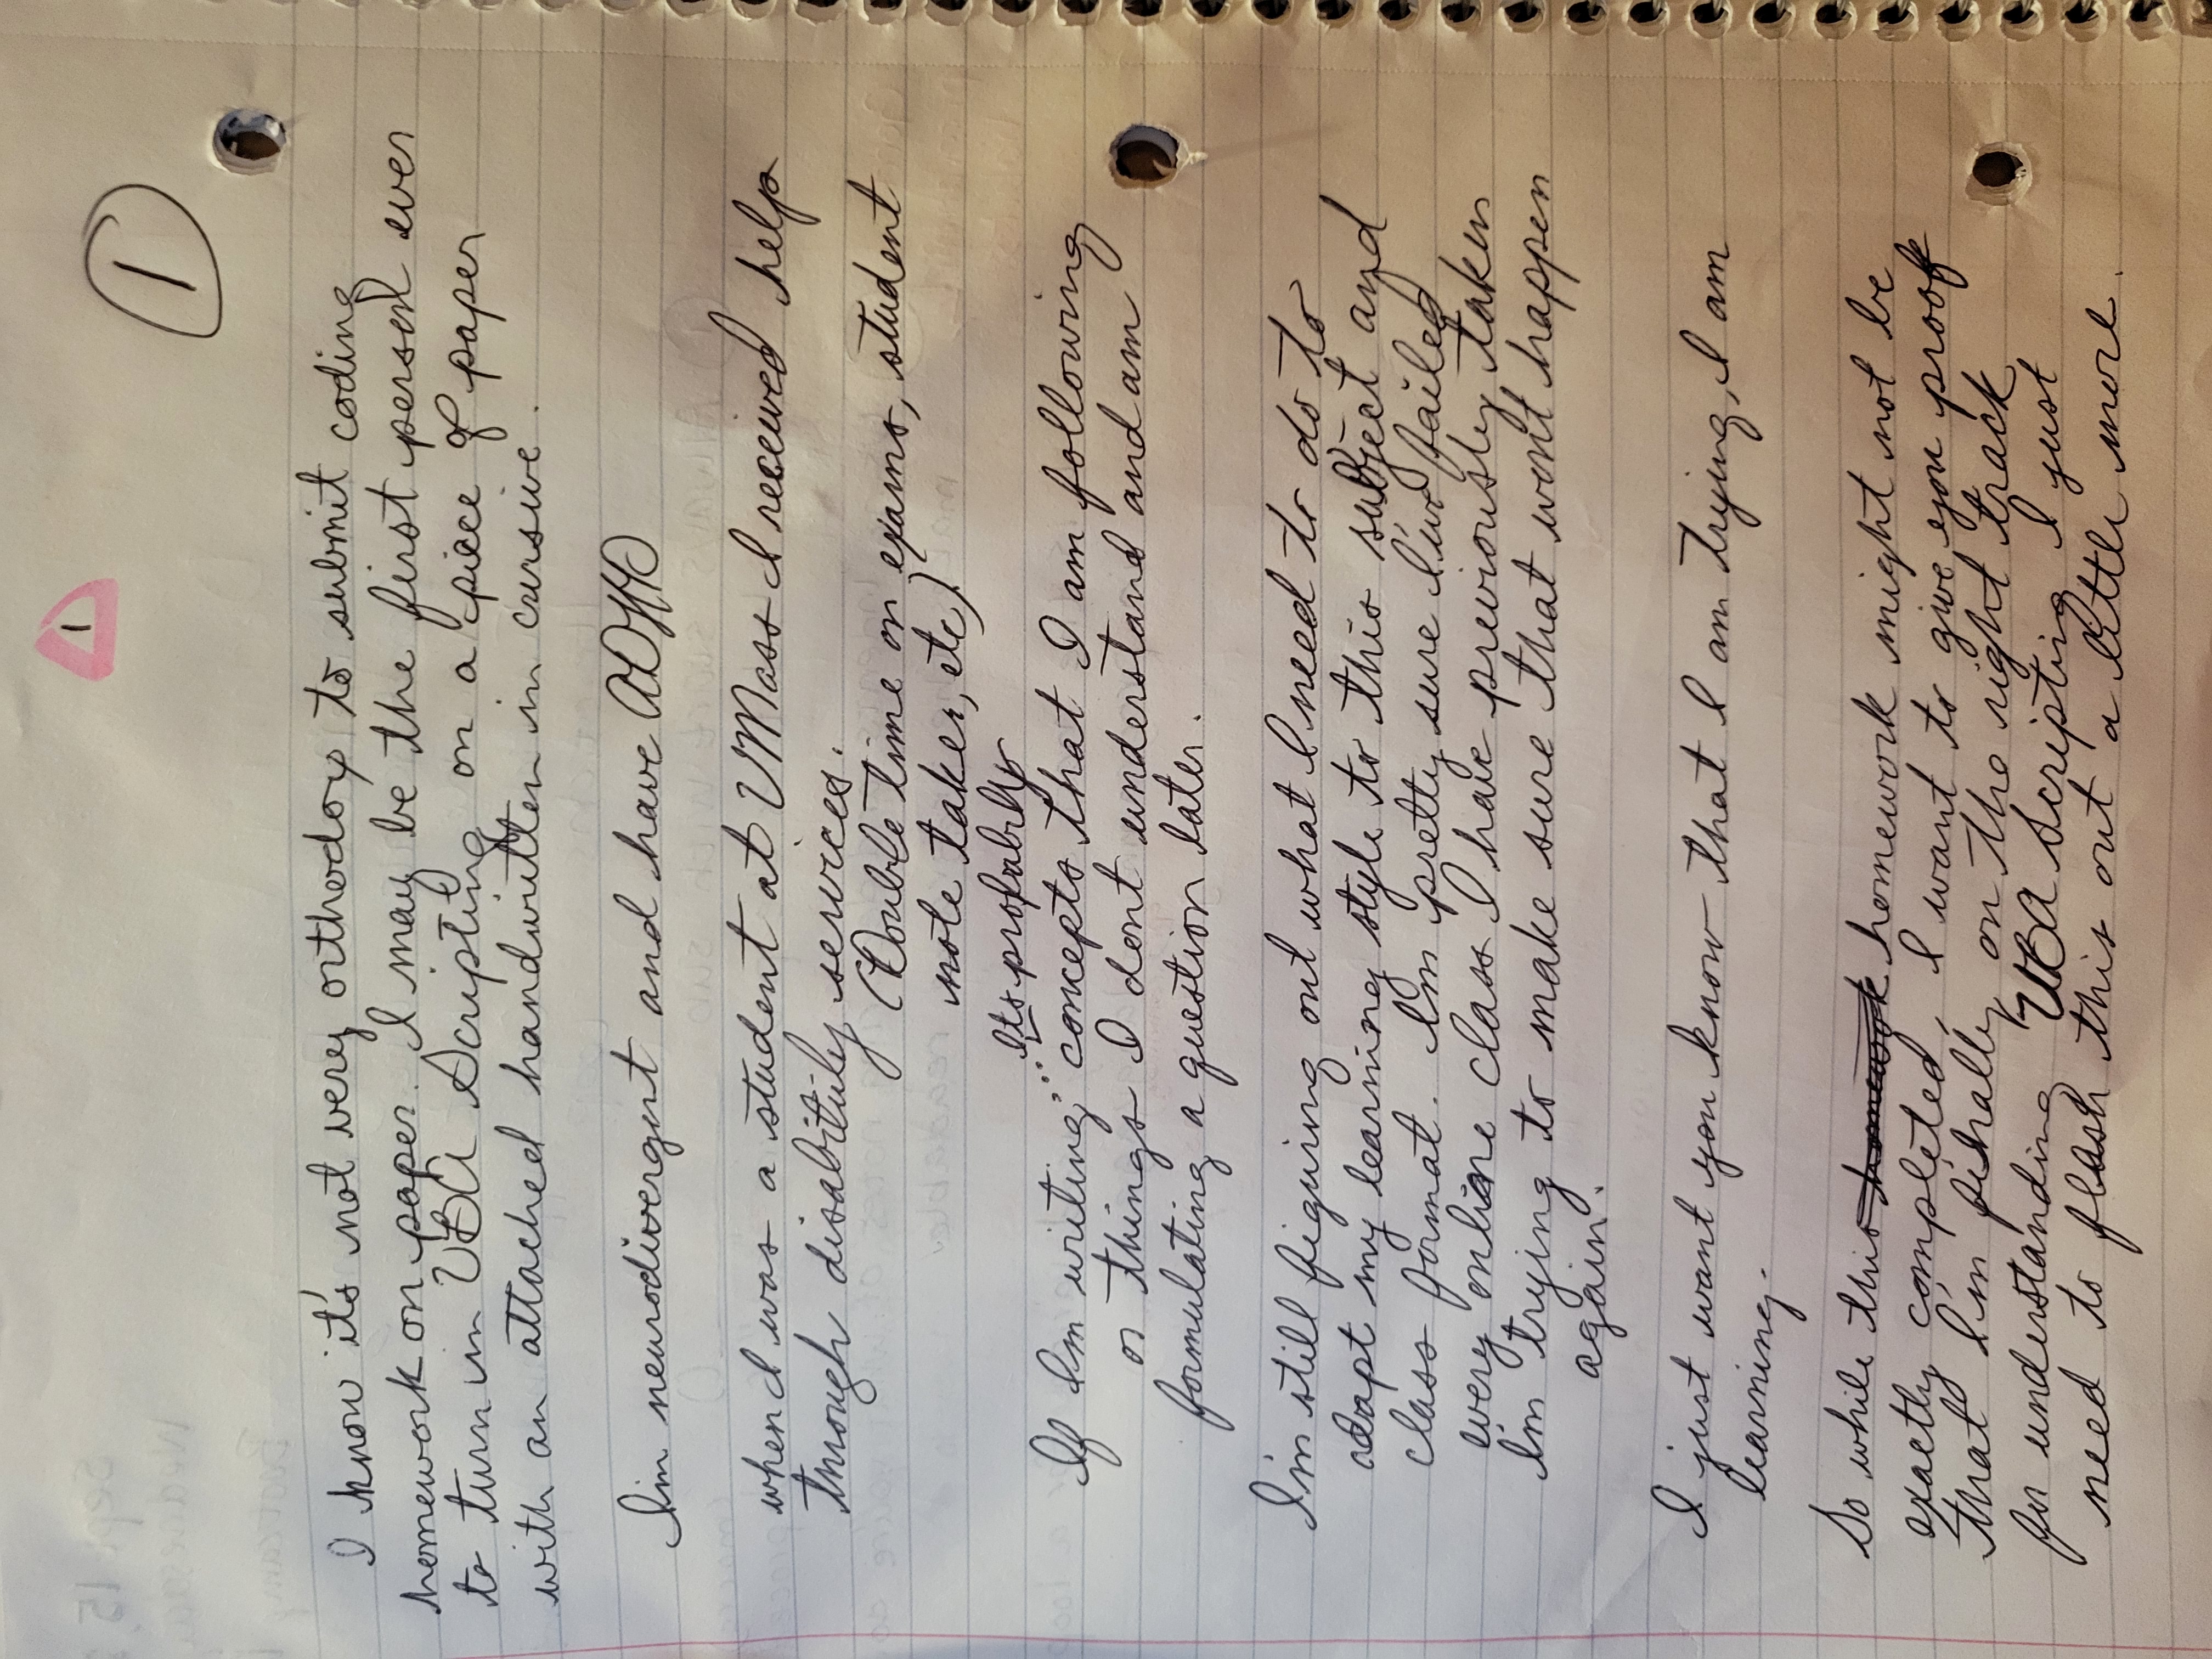 1
1
I know it's not very orthodox to submit coding
homework on paper. I may be the first person ever
to turn in VBA Scripting on a piece of paper
with an attached handwritten in cursive.
Im neurodivergent and have ADHD
when I was a student at UMass I received help
through disabitily services.
(Double time on exams, student
note taker, etc)
Its probably
If Im writing, concepts that I am following
or things I dont understand and am
formulating a question later.
I'm still figuring out what I need to do to
adapt my learning style to this subject and
class format. Im pretty sure I've failed
every online class I have previously taken
Im trying to make sure that won't happen
again.
I just want you know that I am trying, I am
learning.
So while this homework homework might not be
exactly completed, I want to give you proof
that I'm finally on the right track
for understanding VBA Scripting I just
need to flesh this out a little more.